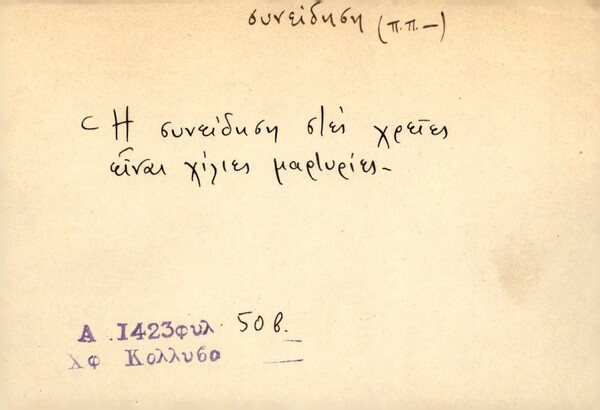 συνείδηση (π.π. –)
Ἡ συνείδηση στὲς χρεῖες
εἶναι χίλιες μαρτυρίες.
Α. 1423 φυλ. 50 β.
Χφ Κολλυβα